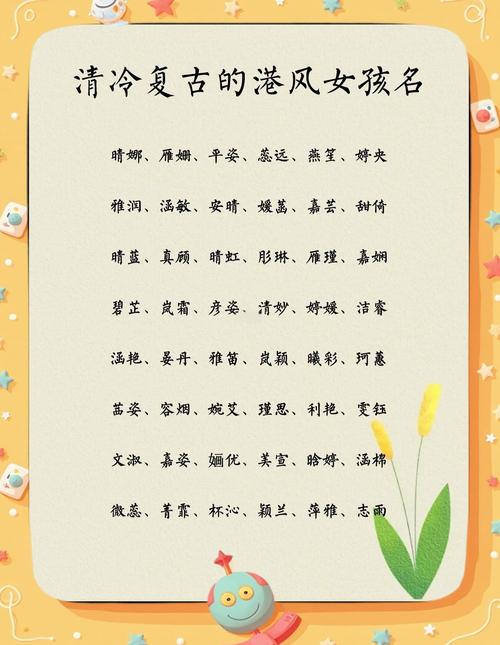 清冷复古的港风女孩名
晴娜、雁姗、平姿、蕊远、燕笙、婷央
雅润、涵敏、安晴、媛菡、嘉芸、甜倚
晴蓝、真顾、晴虹、彤琳、雁瑾、嘉娴
碧芷、岚霜、彦姿、清妙、婷媛、洁睿
涵艳、晏丹、雅笛、岚颖、曦彩、珂蕙
茁姿、容烟、婉艾、瑾思、利艳、雯钰
文淑、嘉姿、婳优、美宣、晗婷、涵棉
微蕊、菁霏、杯沁、颖兰、萍雅、志雨